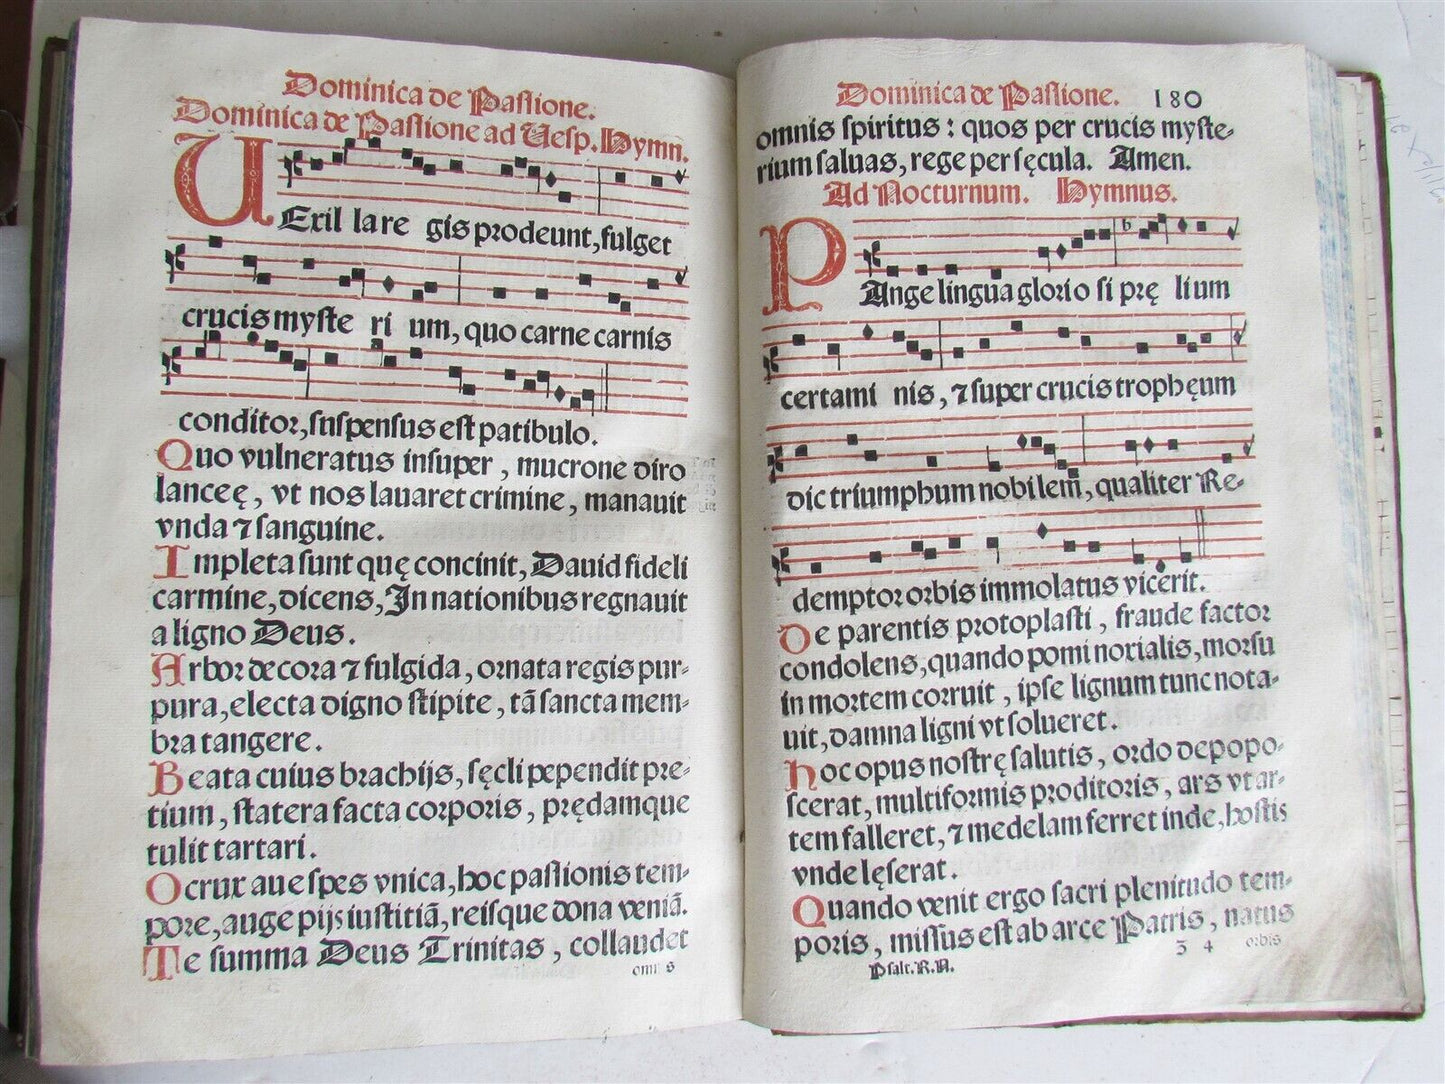 Dominica de Passione.
Dominica de Passione ad Vesp. Hymn.
VExil la re gis prodeunt, fulget
crucis myste ri um, quo carne carnis
conditor, snspensus est patibulo.
Quo vulneratus insuper, mucrone diro
lanceę, vt nos lauaret crimine, manauit
vnda ⁊ sanguine.
Impleta sunt quę concinit, Dauid fideli
carmine, dicens, In nationibus regnauit
a ligno Deus.
Arbor decora ⁊ fulgida, ornata regis pur-
pura, electa digno stipite, tã sancta mem-
bra tangere.
Beata cuius brachijs, sęcli pependit pre-
tium, statera facta corporis, prędamque
tulit tartari.
O crux aue spes vnica, hoc passionis tem-
pore, auge pijs iustitiã, reisque dona veniã.
Te summa Deus Trinitas, collaudet
omnis
Dominica de Passione. 180
omnis spiritus: quos per crucis myste-
rium saluas, rege per sęcula. Amen.
Ad Nocturnum. Hymnus.
PAnge lingua glorio si prę lium
certami nis, ⁊ super crucis trophęum
dic triumphum nobilem, qualiter Re-
demptor orbis immolatus vicerit.
De parentis protoplasti, fraude factor
condolens, quando pomi noxialis, morsu
in mortem corruit, ipse lignum tunc nota-
uit, damna ligni vt solueret.
Hoc opus nostrę salutis, ordo depopo-
scerat, multiformis proditoris, ars vt ar-
tem falleret, ⁊ medelam ferret inde, hostis
vnde lęserat.
Quando venit ergo sacri plenitudo tem-
poris, missus est ab arce Patris, natus
Psalt. R. N. 3 4 orbis